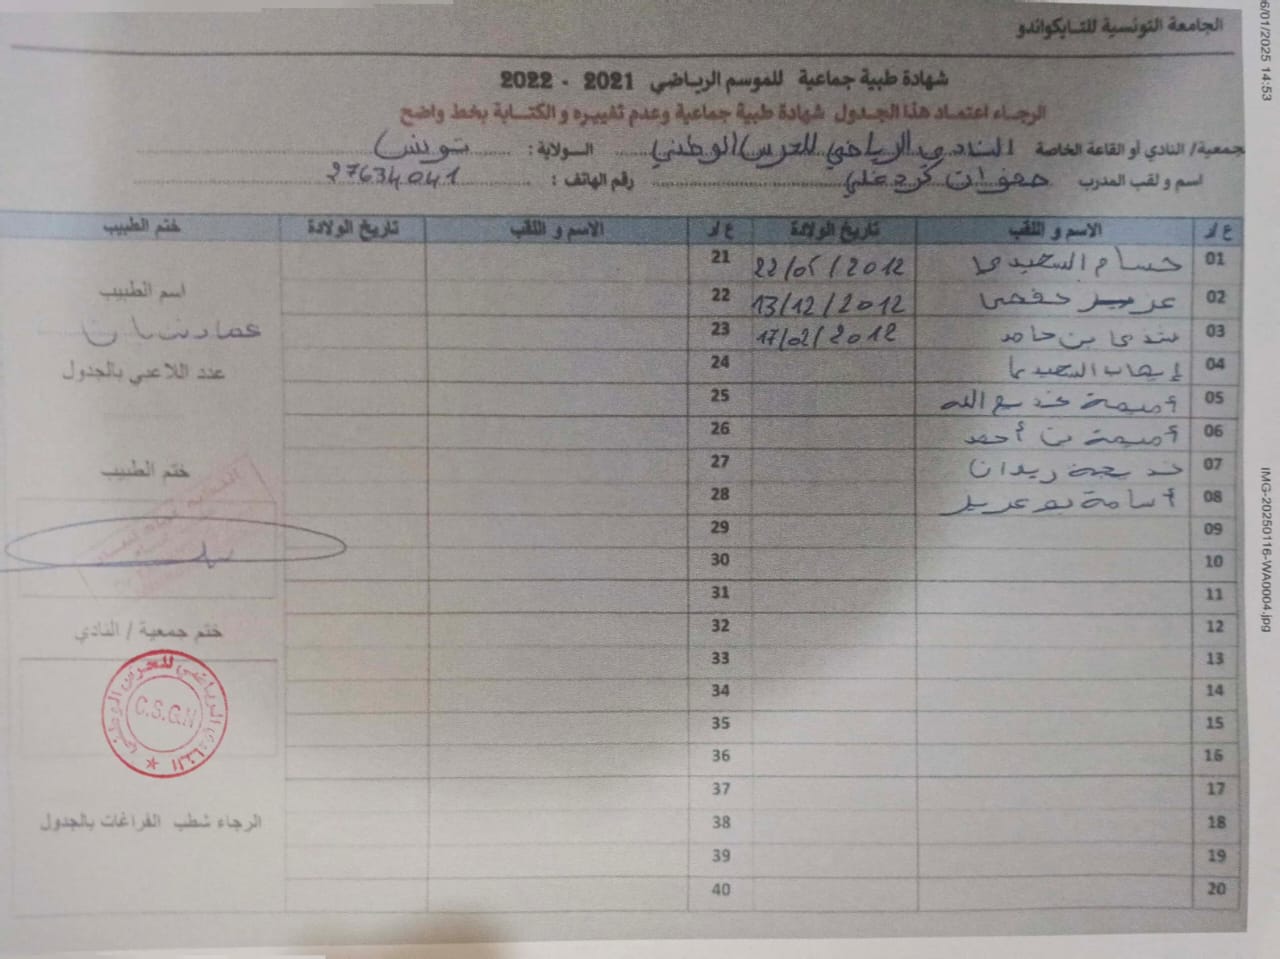 الجامعة التونسية للتايكواندو
شهادة طبية جماعية للموسم الرياضي 2021 - 2022
الرجاء اعتماد هذا الجدول شهادة طبية جماعية وعدم تغييره و الكتابة بخط واضح
جمعية/ النادي أو القاعة الخاصة النادي الرياضي للحرس الوطني الولاية: تونس
اسم و لقب المدرب صفوان كردغلي رقم الهاتف: 27634041
ع/ر الاسم و اللقب تاريخ الولادة ع/ر الاسم و اللقب تاريخ الولادة ختم الطبيب
01 حسام السعيدي 22/05/2012 21
02 عزيز حفصي 13/12/2012 22
03 بن حامد 17/02/2012 23
04 إيهاب السعيدي 24
05 أميمة 25
06 أميمة بن أحمد 26
07 خديجة زيدان 27
08 أسامة بوعزيز 28
09 29
10 30
11 31
12 32
13 33
14 34
15 35
16 36
17 37
18 38
19 39
20 40
اسم الطبيب
عماد
عدد اللاعبي بالجدول
ختم الطبيب
ختم جمعية / النادي
النادي الرياضي للحرس الوطني
C.S.G.N
الرجاء شطب الفراغات بالجدول
6/01/2025 14:53
IMG-20250116-WA0004.jpg